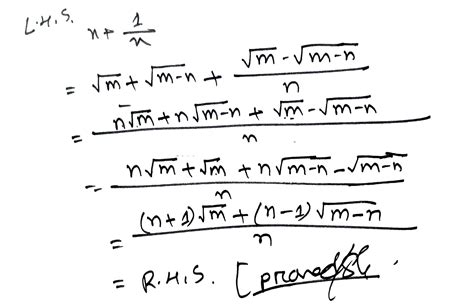 L.H.S. n + 1/n
= √m + √m-n + (√m - √m-n)/n
= (n√m + n√m-n + √m - √m-n)/n
= (n√m + √m + n√m-n - √m-n)/n
= ((n+1)√m + (n-1)√m-n)/n
= R.H.S. [proved]